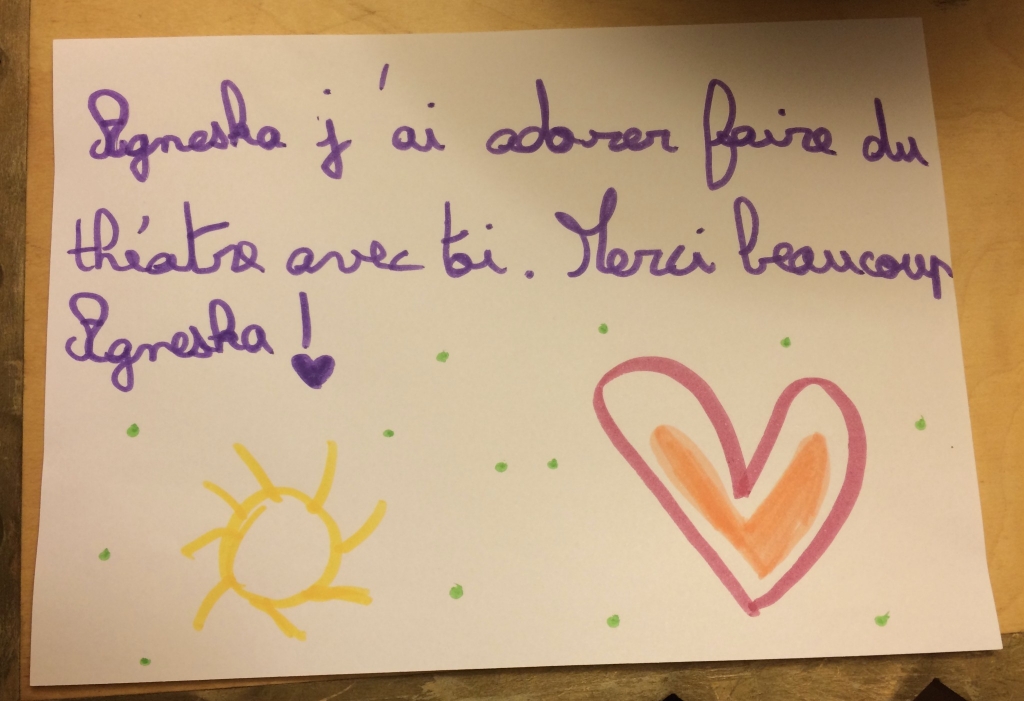 Agneska j'ai adorer faire du
théatre avec toi. Merci beaucoup
Agneska !